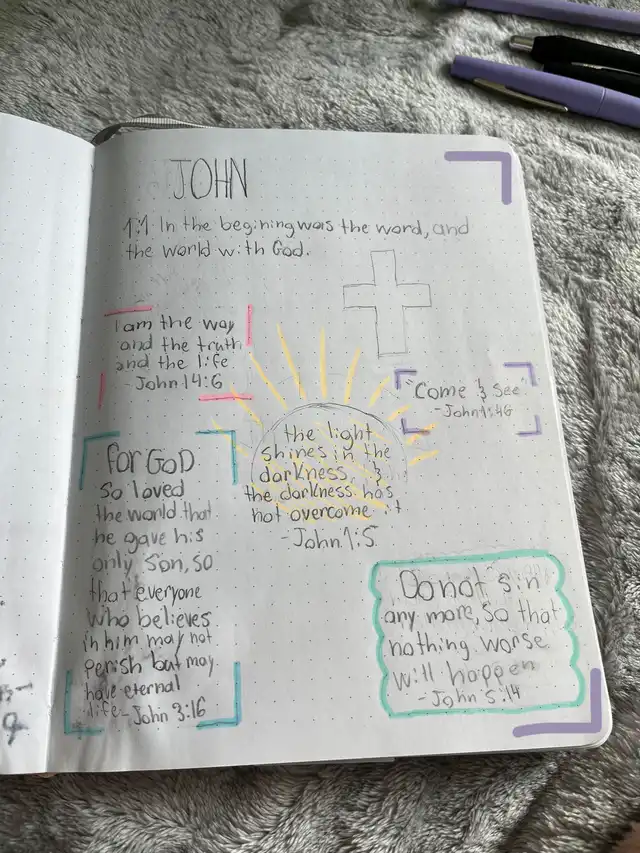 JOHN
1:1 In the begining was the word, and
the world with God.
I am the way
and the truth
and the life
- John 14:6
"Come & See"
- John 1:46
the light
shines in the
darkness, &
the darkness has
not overcome it
- John 1:5
for GOD
So loved
the world that
he gave his
only Son, so
that everyone
who believes
in him may not
perish but may
have eternal
life - John 3:16
Do not sin
any more, so that
nothing worse
will happen
- John 5:14